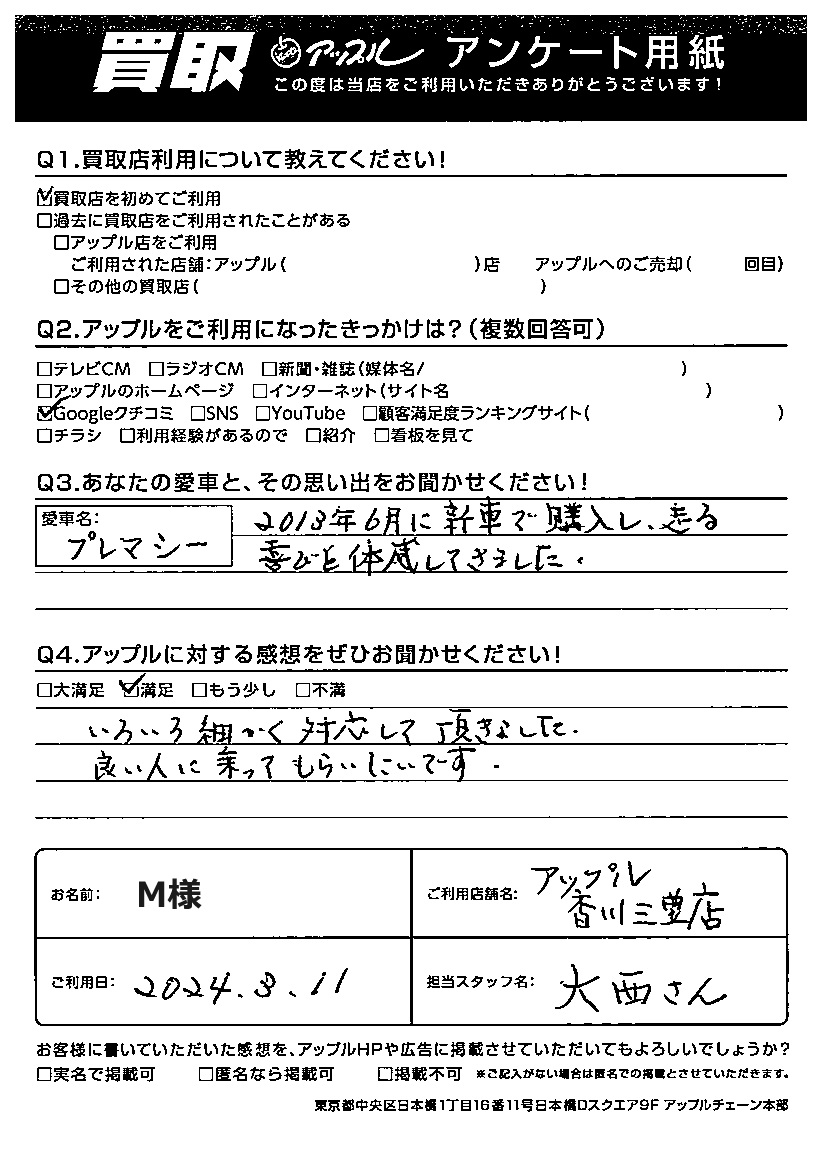 買取 アップル アンケート用紙
この度は当店をご利用いただきありがとうございます!
Q1.買取店利用について教えてください!
☑買取店を初めてご利用
□過去に買取店をご利用されたことがある
□アップル店をご利用
ご利用された店舗:アップル( )店 アップルへのご売却( 回目)
□その他の買取店( )
Q2.アップルをご利用になったきっかけは?(複数回答可)
□テレビCM □ラジオCM □新聞・雑誌(媒体名/ )
□アップルのホームページ □インターネット(サイト名 )
☑Googleクチコミ □SNS □YouTube □顧客満足度ランキングサイト( )
□チラシ □利用経験があるので □紹介 □看板を見て
Q3.あなたの愛車と、その思い出をお聞かせください!
愛車名:
プレマシー
2013年6月に新車で購入し、走る
喜びを体感してきました.
Q4.アップルに対する感想をぜひお聞かせください!
□大満足 ☑満足 □もう少し □不満
いろいろ細かく対応して頂きました.
良い人に乗ってもらいたいです.
お名前: M様
ご利用店舗名: アップル
香川三豊店
ご利用日: 2024.3.11
担当スタッフ名: 大西さん
お客様に書いていただいた感想を、アップルHPや広告に掲載させていただいてもよろしいでしょうか?
□実名で掲載可 □匿名なら掲載可 □掲載不可 ※ご記入がない場合は匿名での掲載とさせていただきます。
東京都中央区日本橋1丁目16番11号日本橋Dスクエア9F アップルチェーン本部